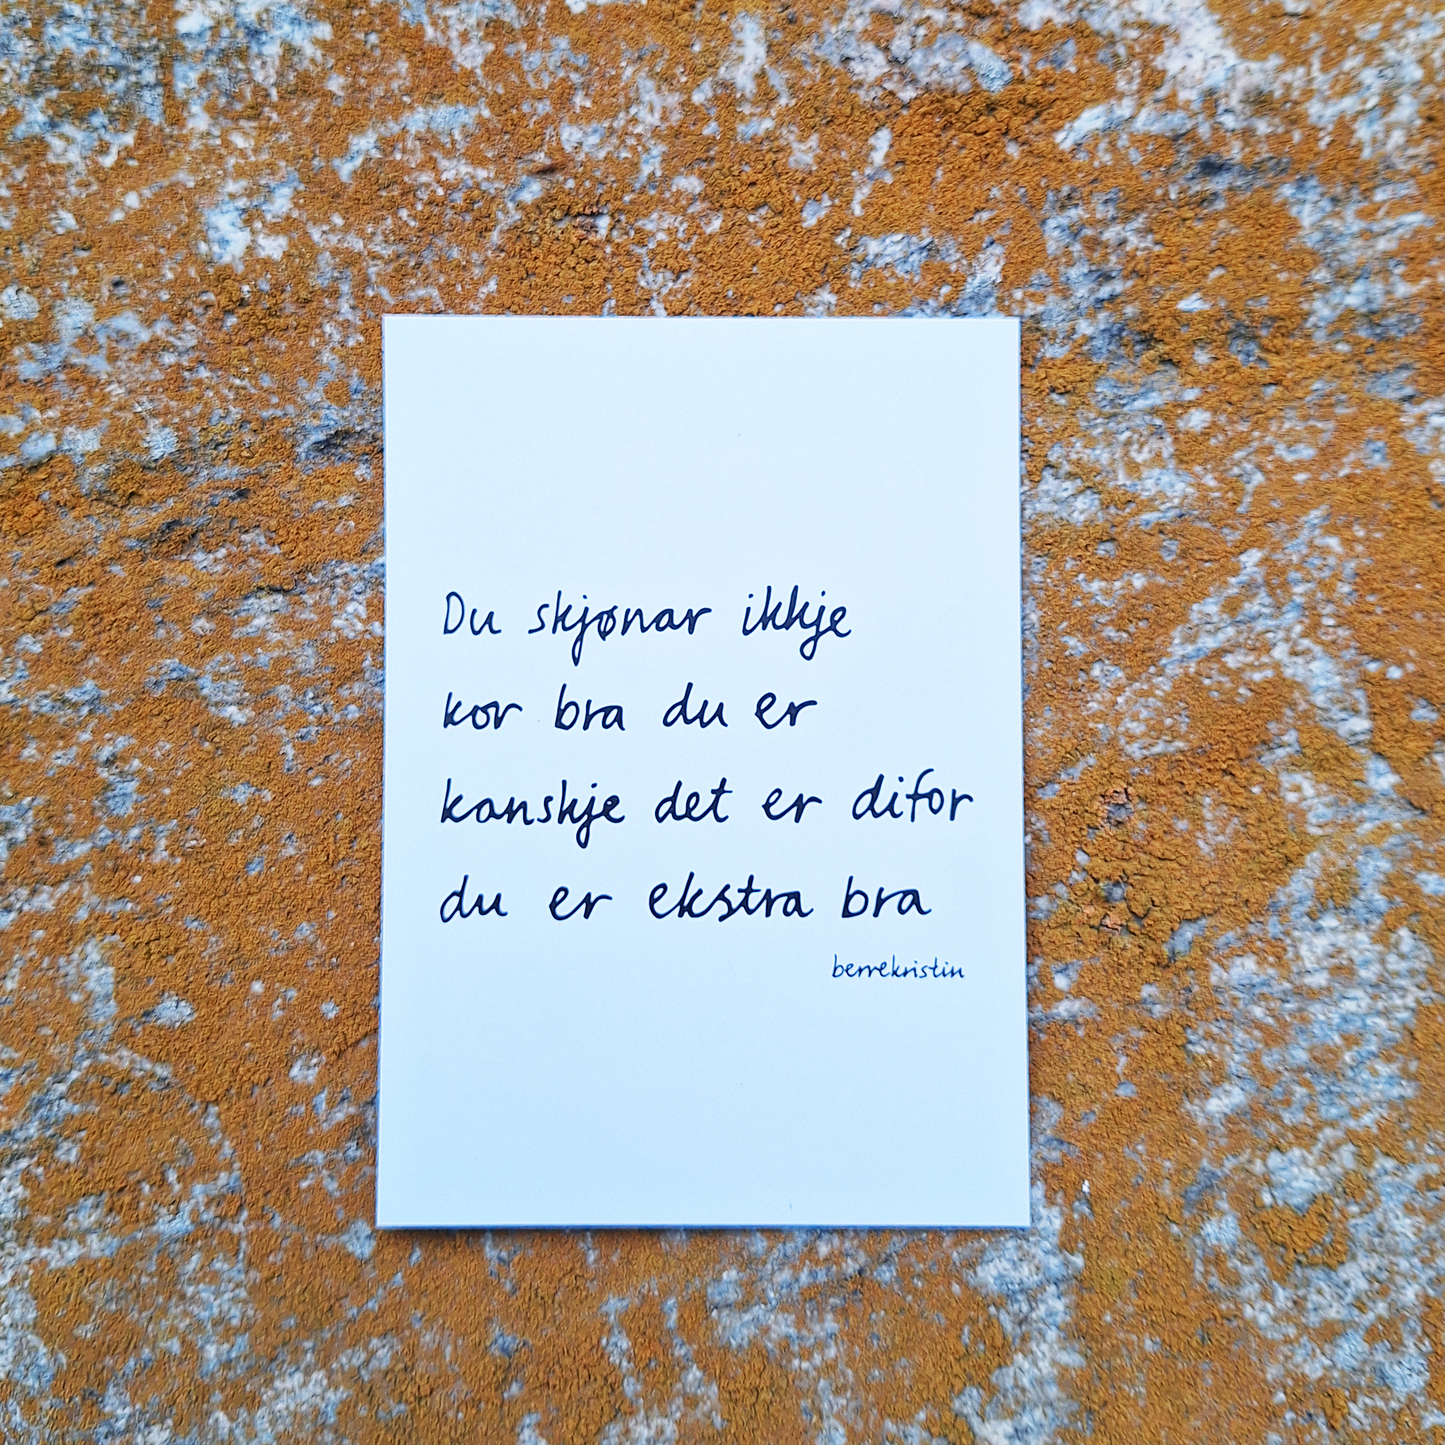 Du skjønar ikkje
kor bra du er
kanskje det er difor
du er ekstra bra
berrekristin